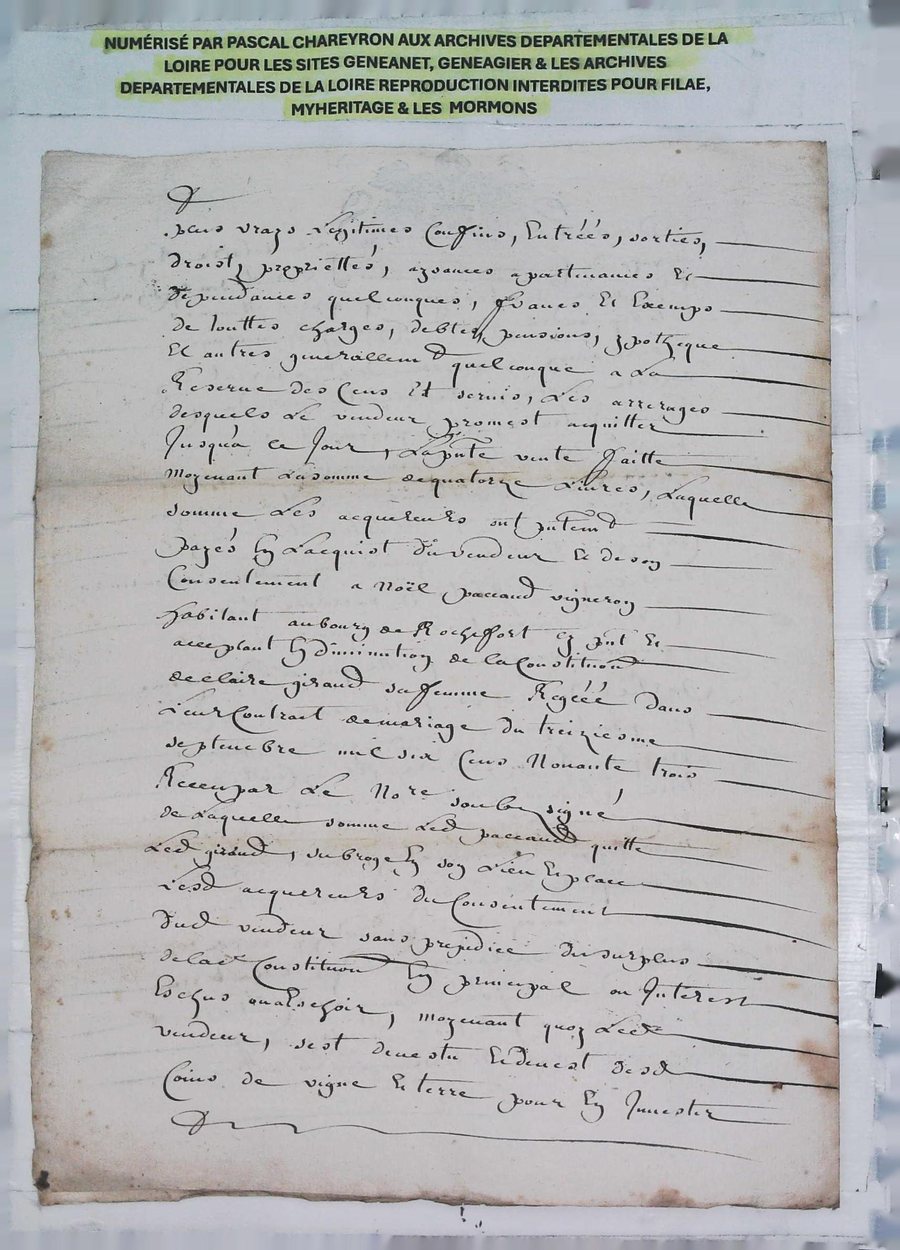 NUMÉRISÉ PAR PASCAL CHAREYRON AUX ARCHIVES DEPARTEMENTALES DE LA
LOIRE POUR LES SITES GENEANET, GENEAGIER & LES ARCHIVES
DEPARTEMENTALES DE LA LOIRE REPRODUCTION INTERDITES POUR FILAE,
MYHERITAGE & LES MORMONS
vrays legitimes Confins, Entrées, sorties,
droist, propriettés, ayzances apartinances Et
dependances quelconques, francs Et Exemps
de touttes charges, debtes, pensions, ypotheque
Et autres generallemt quelconque a La
Reserue des Cens Et seruis, Les arrerages
desquels Le vendeur promest acquitter
Jusqu'a ce Jour, Lapnte vente faitte
moyenant La somme de quatorze Liures, Laquelle
somme Les acquereurs ont
payés En Lacquist du vendeur Et de son
Consentement a Noël paccaud vigneron
habitant au bourg de Rochefort cy pnt Et
acceptant En diminution de la Constituon
de claire giraud sa femme Regléé dans
Leur Contract de mariage du treiziesme
septembre mil six Cens Nonante trois
Receu par Le Nore soubs signé
de Laquelle somme Led paccaud quitte
Led giraud, subroge En son Lieu Et place
Lesd acquereurs du Consentement
dud vendeur sans prejudice du surplus
de lade Constituon En principal ou Interest
Escheus ou a Eschoir, moyenant quoy Led
vendeur, sest deuestu Et deuest desd
Coins de vigne Et terre pour En Inuestir